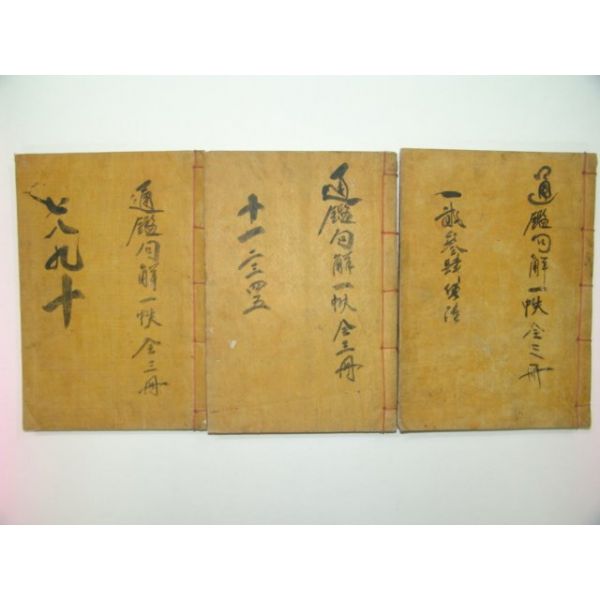 通鑑句解一帙 全三冊
一貳參肆伍
通鑑句解一帙 全三冊
十一 二三四五
通鑑句解一帙 全三冊
七八九十